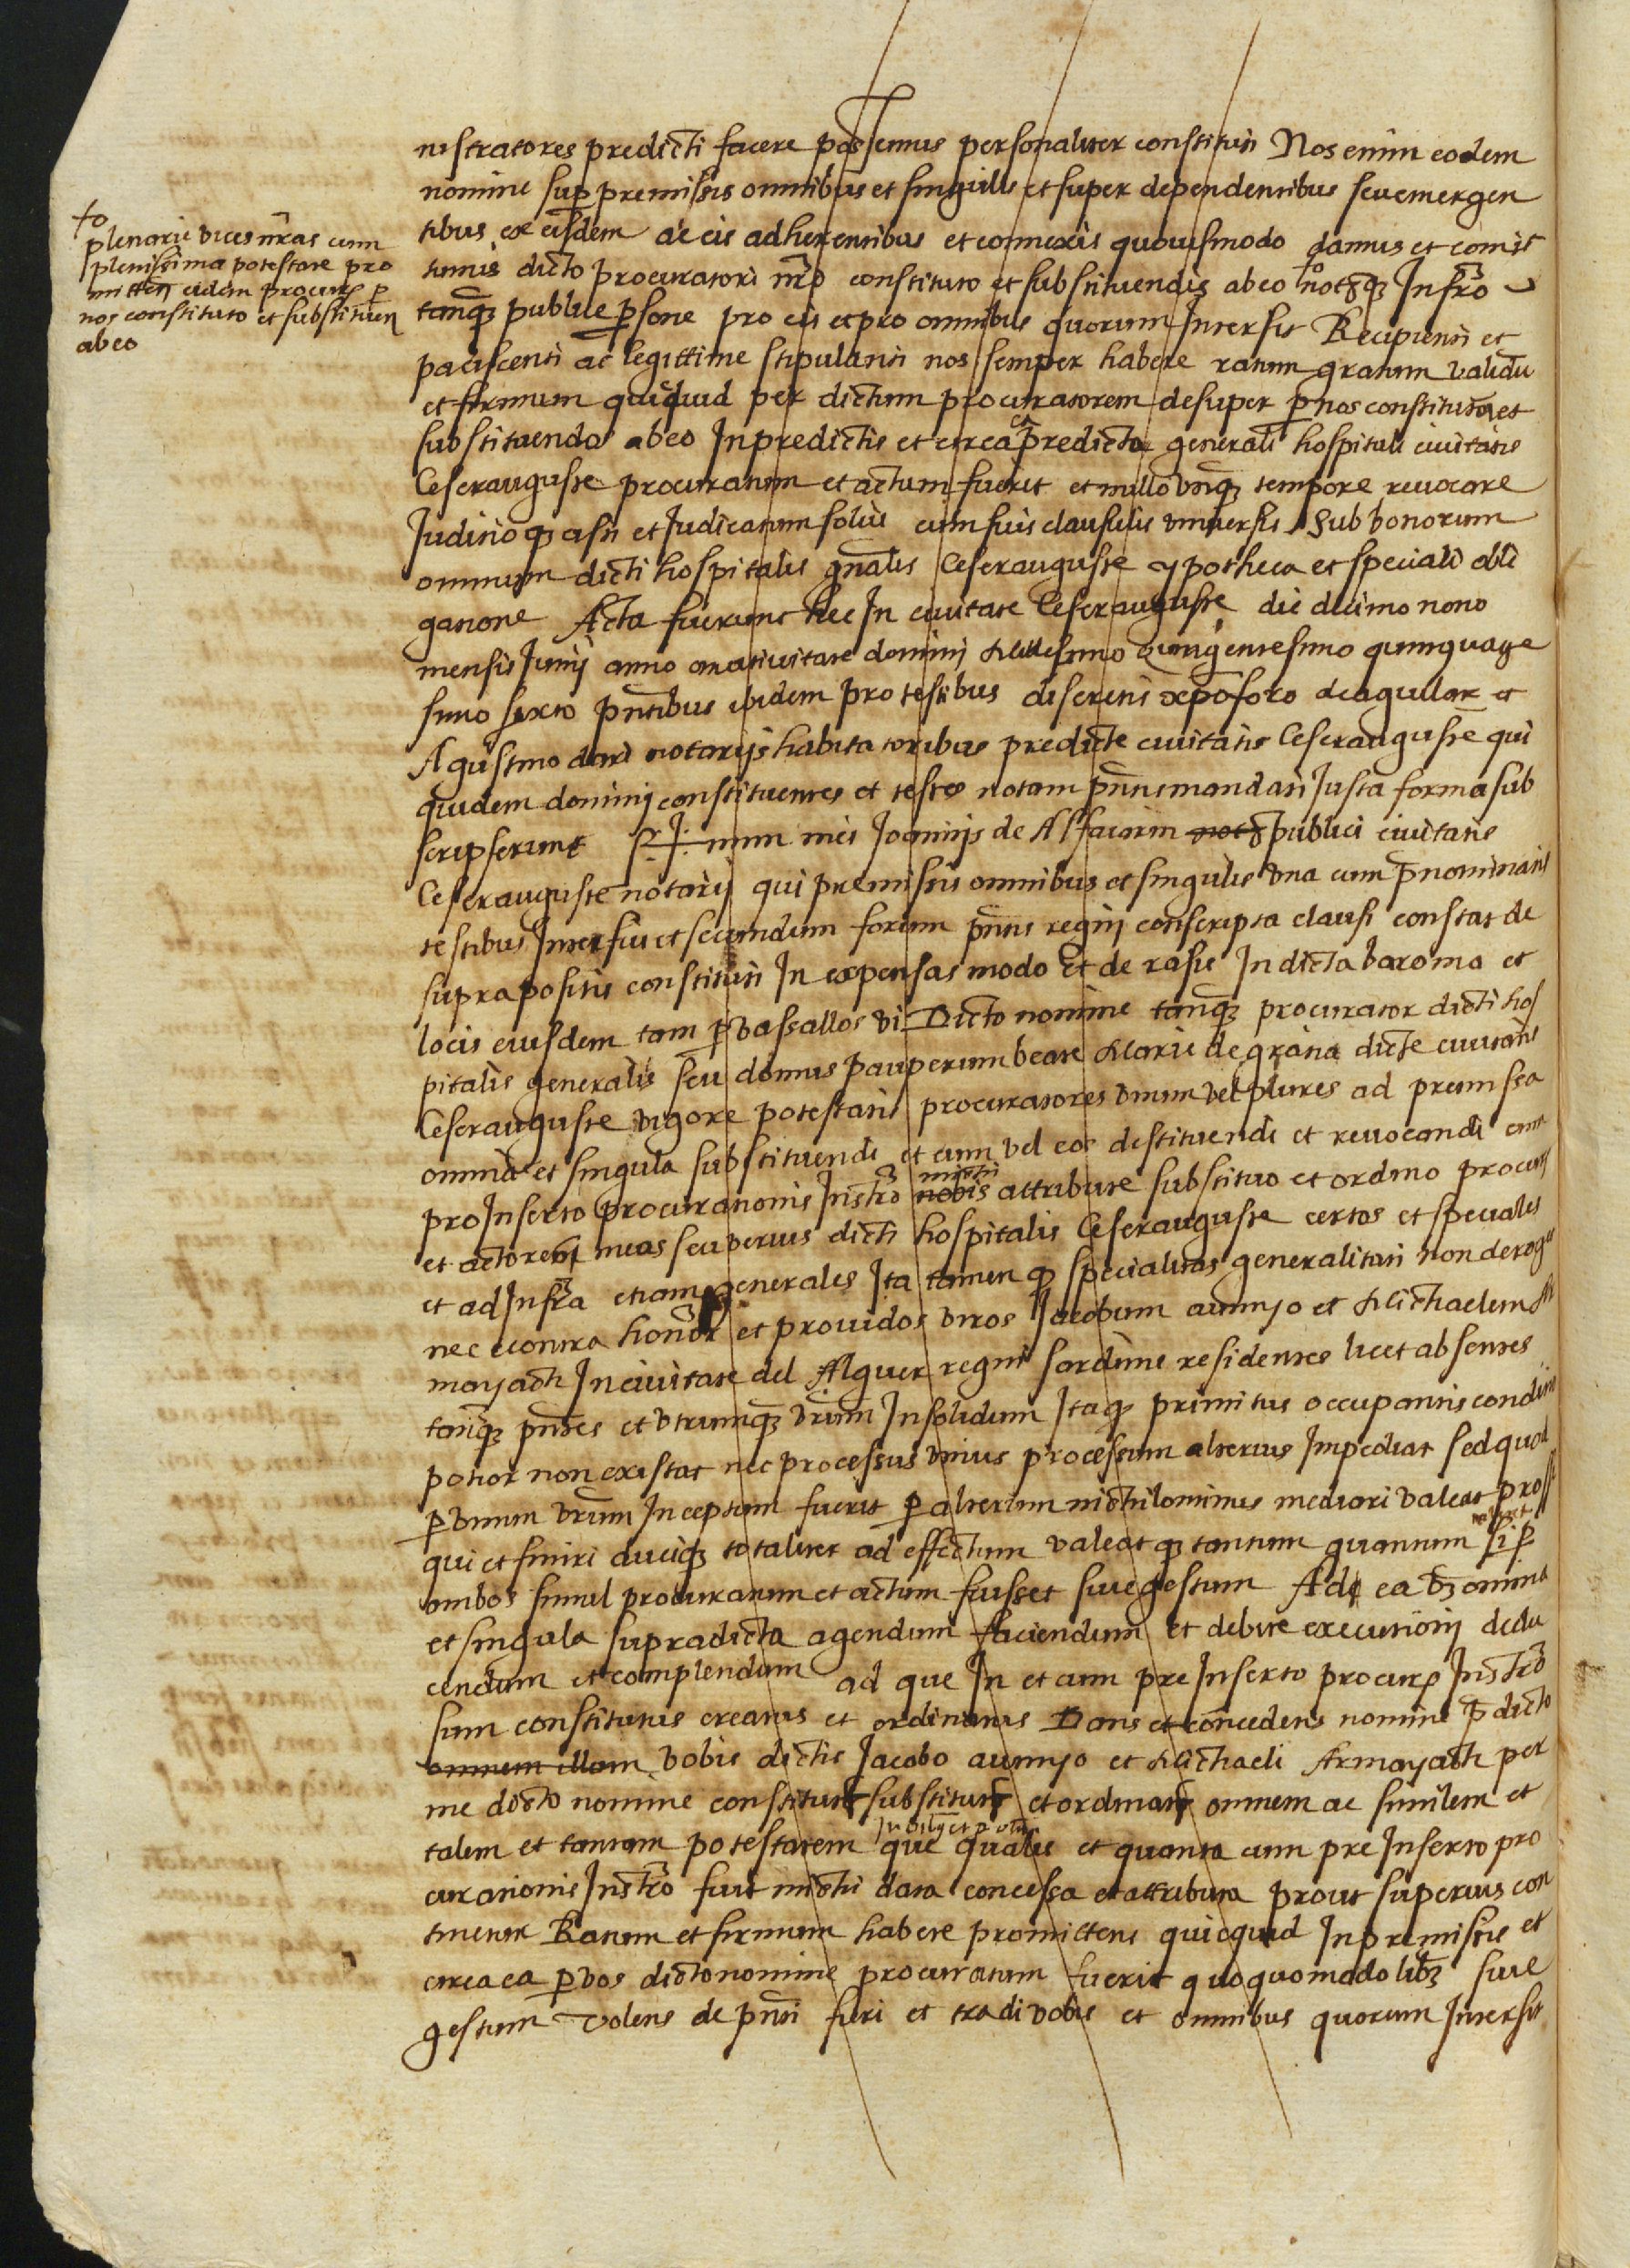 to
plenarie vices nras cum
plenissima potestate pro
mitten eidem procur p
nos constituto et substituen
ab eo
nistratores predicti facere possemus personaliter constituti Nos enim eodem
nomine sup premissis omnibus et singulis et super dependentibus seu emergen
tibus ex eisdem ac eis adherentibus et connexis quouismodo damus et comit
timus dicto procuratori nro constituto et substituendis ab eo notoq Infrō
tanq publice psone pro eis et pro omnibus quorum Intersit Recipienti et
paciscenti ac legittime stipulanti nos semper habere ratum gratum validu
et firmum quidquid per dictum procuratorem desuper p nos constitutu et
substituendos ab eo In predictis et circa predicta generali hospitali ciuitatis
Cesarauguste procuratum et actum fuerit et nullo vnq tempore reuocare
Judicioq sisti et Judicatum solui cum suis clausulis vniuersis sub bonorum
omnium dicti hospitalis gnalis Cesarauguste ypotheca et speciali obli
gatione Acta fuerunt hec In ciuitate Cesarauguste die decimo nono
mensis Junij anno a natiuitate dominj Millesimo quingentesimo quinquage
simo sexto pntibus ibidem pro testibus discretis xpoforo de aguilar et
Agustino dari notarijs habitatoribus predicte ciuitatis Cesarauguste qui
quidem dominj constituentes et testes notam pntis mandati Justa forma sub
scripserunt Signum mei Joannis de Alfaiarin not publici ciuitatis
Cesarauguste notarij qui premissis omnibus et singulis vna cum pnominatis
testibus Interfui et secundum forum pntis regnj conscripta clausi constat de
supra positis constituti In expensas modo et de rasis In dicta baronia et
locis eiusdem tam p vassallos vi Dicto nomine tanq procurator dicti hos
pitalis generalis seu domus pauperum beate Marie de gratia dicte ciuitatis
Cesarauguste vigore potestatis procuratores vnum vel plures ad premissa
omnia et singula substituendi et eum vel eos destituendi et reuocandi cum
pro Inserto procurationis Instro nobis michi attribute substituo et ordino procur
et actores meos seu verius dicti hospitalis Cesarauguste certos et speciales
et ad Infra etiam generales Ita tamen q specialitas generalitati non deroget
nec econtra honor et prouidos viros Jacobum aumyo et Michaelem
mayach In ciuitate del Alguer regni sardinie residentes licet absentes
tanq pntes et vtrumq vrum In solidum Itaq primitus occupantis conditio
potior non existat nec processus vnius processum alterius Impediat sed quod
p vnum vrum Inceptum fuerit p alterum nichilominus mediari valeat prosse
qui et finiri duciq totaliter ad effectum valeatq tantum quantum si p
ambos simul procuratum et actum fuisset siue gestum Ad ea vz omnia
et singula supradicta agendum faciendum et debite executionj dedu
cendum et complendum ad que In et cum pre Inserto procur Instro
sum constitutus creatus et ordinatus Dans et concedens nomine p dicto
omnem illam vobis dictis Jacobo aumyo et Michaeli Armayach per
me dicto nomine constitut substitut et ordinat omnem ac similem et
talem et tantam potestatem que qualis et quanta cum pre Inserto pro
curationis Instro fuit michi data concessa et attributa prout superius con
tinetur Ratum et firmum habere promittens quicquid In premissis et
circa ea p vos dicto nomine procuratum fuerit quoquomodo libz siue
gestum Volens de pnti fieri et tradi vobis et omnibus quorum Intersit